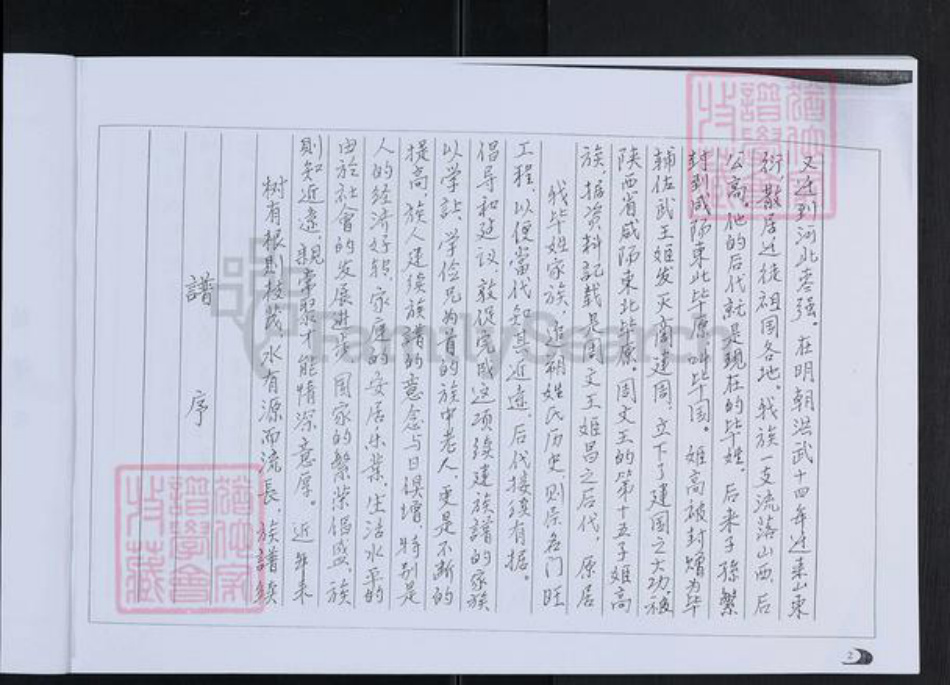 譜序
树有根則枝茂，水有源而流長，族譜续
則知近遠，親常聚才能情深意厚。近年来
由於社會的发展进步，国家的繁荣倡盛，族
人的经济好转，家庭的安居乐業，生活水平的
提高，族人建续族譜的意念与日俱增，特别是
以学訨、学俭兄为首的族中老人，更是不断的
倡导和建议，敦促完成这项续建族譜的家族
工程，以便當代知其近遠，后代接续有据。
我毕姓家族，追朔姓氏历史，则原名门旺
族，据资料記载是周文王姬昌之后代，原居
陕西省咸阳东北毕原。周文王的第十五子姬高
辅佐武王姬发灭商建周，立下了建国之大功，被
封到咸阳東北毕原，叫毕国。姬高被封爵为毕
公高，他的后代就是现在的毕姓。后来子孫繁
衍散居迁徒祖国各地。我族一支流落山西，后
又迁到河北枣强。在明朝洪武十四年迁来山東
FamilySearch
2